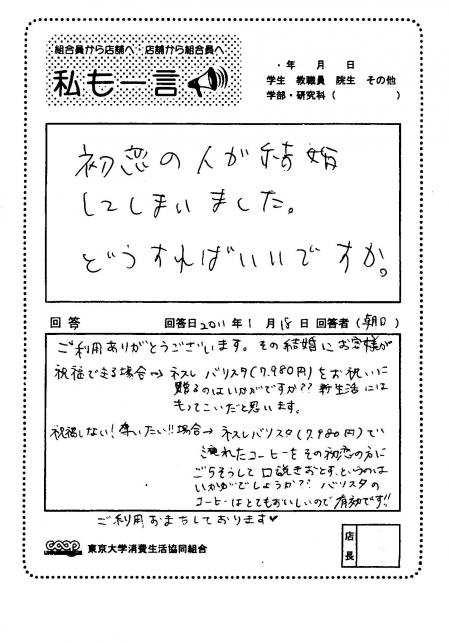 組合員から店舗へ 店舗から組合員へ
私も一言
年 月 日
学生 教職員 院生 その他
学部・研究科( )
初恋の人が結婚
してしまいました。
どうすればいいですか。
回答 回答日2011年1月18日 回答者(朝日)
ご利用ありがとうございます。その結婚にお客様が
祝福できる場合→ ネスレ バリスタ(7,980円)をお祝いに
贈るのはいかがですか?? 新生活には
もってこいだと思います。
祝福しない!奪いたい!!場合→ ネスレバリスタ(7,980円)で
淹れたコーヒーをその初恋の方に
ごちそうして口説きおとす、というのは
いかがでしょうか?? バリスタの
コーヒーはとてもおいしいので有効です!!
ご利用おまちしております♥
coop 東京大学消費生活協同組合
店長